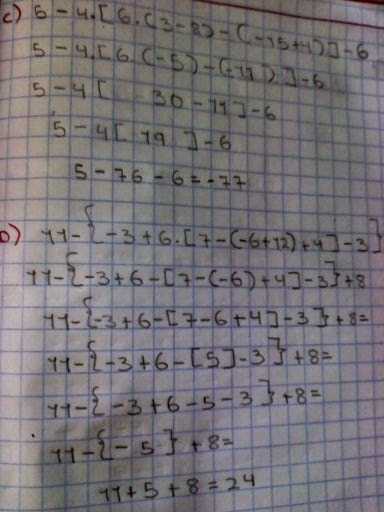 c) 5 - 4.[6.(3-8) - (-15+4)] - 6
5 - 4.[6.(-5) - (-11)] - 6
5 - 4[ 30 - 11] - 6
5 - 4[ 19 ] - 6
5 - 76 - 6 = -77
b) 11-{-3+6.[7-(-6+12)+4]-3}
11-{-3+6-[7-(-6)+4]-3}+8
11-{-3+6-[7-6+4]-3}+8=
11-{-3+6-[5]-3}+8=
11-{-3+6-5-3}+8=
11-{-5}+8=
11+5+8=24